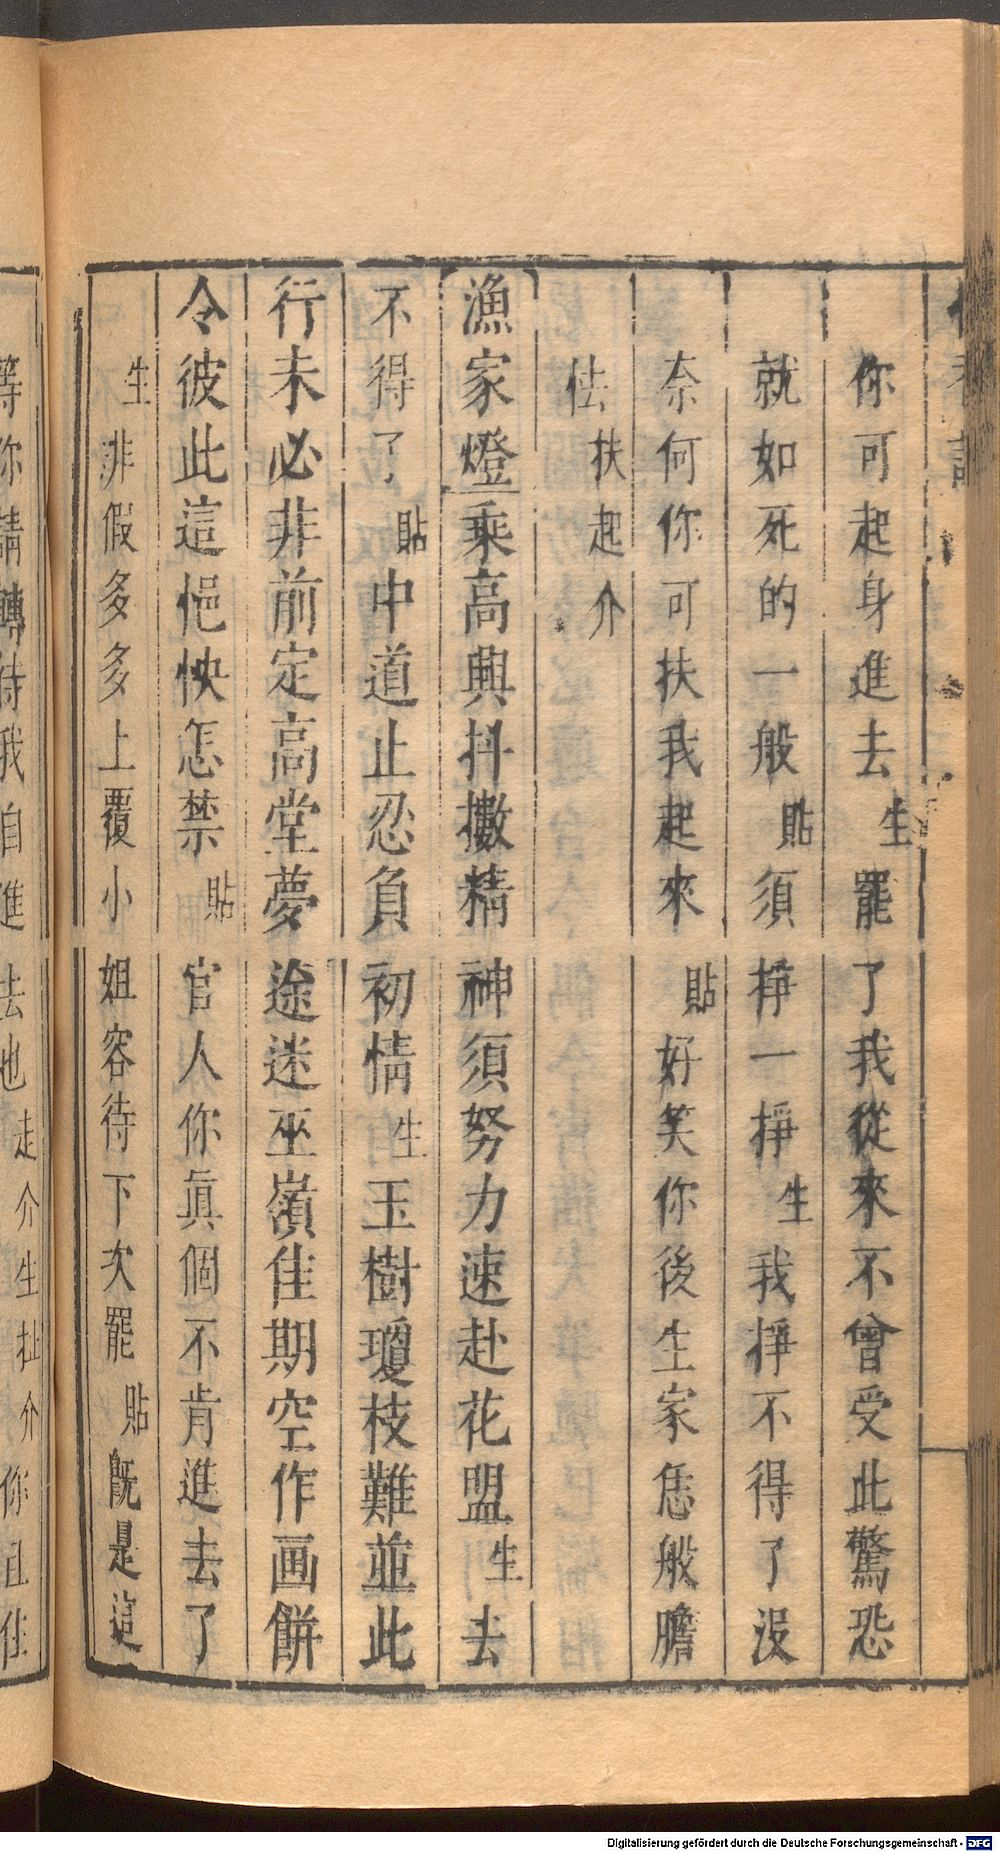 你可起身進去生罷了我從來不曾受此驚恐
就如死的一般貼須掙一掙生我掙不得了沒
奈何你可扶我起來貼好笑你後生家恁般膽
怯扶起介
漁家燈乘高興抖擻精神須努力速赴花盟生去
不得了貼中道止忍負初情生玉樹瓊枝難並此
行未必非前定高堂夢途迷巫嶺佳期空作画餅
令彼此這悒怏怎禁貼官人你眞個不肯進去了
生非假多多上覆小姐容待下次罷貼旣是這
等你請轉待我自進去也走介生扯介你且住
Digitalisierung gefördert durch die Deutsche Forschungsgemeinschaft - DFG